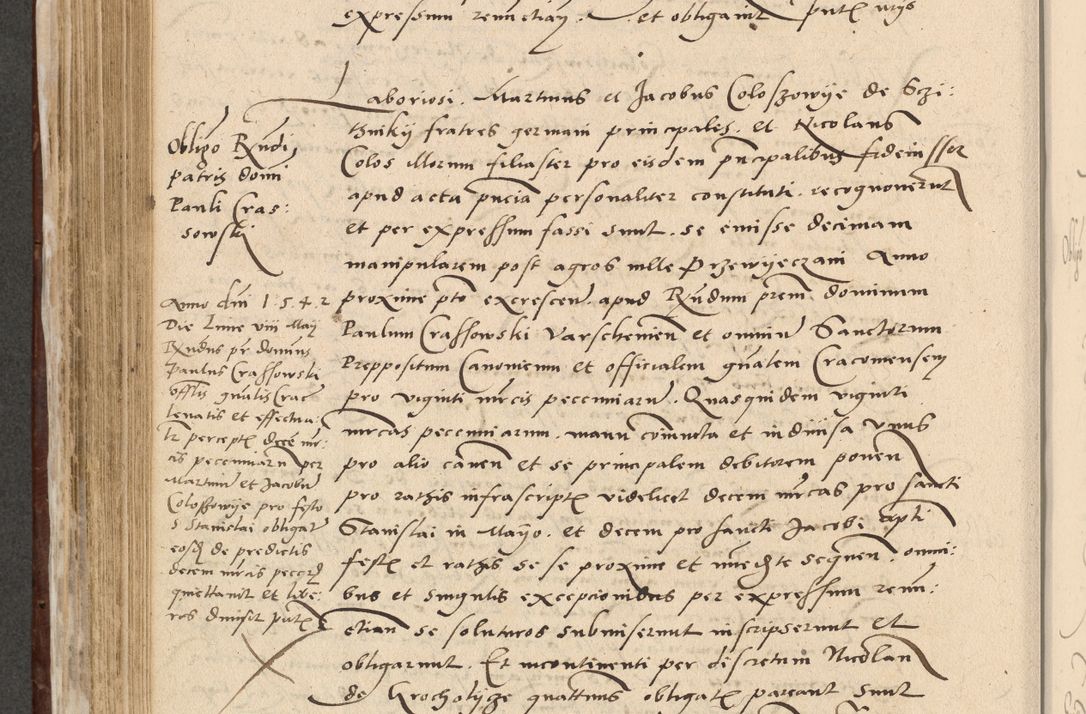 expressum renunctiay. et obligavit putx nris
Laboriosi. Martinus et Jacobus Coloszowije de Sczi:
thnikij fratres germani principales. et Nicolaus
Colos illorum filiaster pro eisdem pncipalibus fideiussor
apud acta pncia personaliter constituti. recognoverunt
et per expressum fassi sunt. se emisse decimam
manipularem post agros ville Przewyeczani Anno
proxime pto excrescen. apud Rndum prem dominum
Paulum Crassowski Varschevien et omniu Sanctorum
Preppositum Canonicum et officialem gnalem Cracoviensem
pro viginti mrcis pecuniaru. Quasquidem viginti
mrcas pecuniarum. manu coniuncta et indivisa unus
pro alio caven et se principalem debitorem ponen
pro rathis infrascriptx videlicet decem mrcas pro sancti
Stanislai in Maijo. et decem pro sancti Jacobi apti
festx et rathis se se proxime et imediate sequen. omni:
bus et singulis excepcionibus per expressum renu:
ctian se soluturos submiserunt inscripserunt et
obligarunt. Et incontinenti per discretum Nicolau
de Krocholijcze quattuus obligatx pareant sunt
Obligo Rndi
patris domi
Pauli Cras:
sowski
Anno dni 1542
Die Lune viii Maij
Rndus pr dominus
Paulus Crassowski
offlis gnalis Crac
levatis et effectua:
lr perceptx decē mr:
cis pecuniaru per
Martinu et Jacobu
Coloszowije pro festo
S Stanislai obligat
eosdem de predictis
decem mrcis
quiettavit et libe:
ros dimisit putx